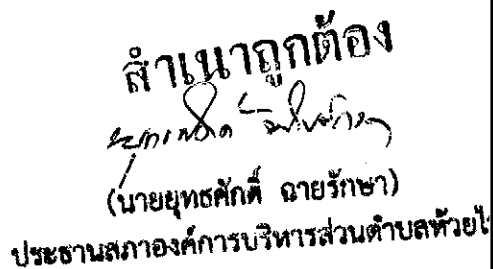 สำเนาถูกต้อง
ยุทธศักดิ์ ฉายรักษา
(นายยุทธศักดิ์ ฉายรักษา)
ประธานสภาองค์การบริหารส่วนตำบลห้วยไ